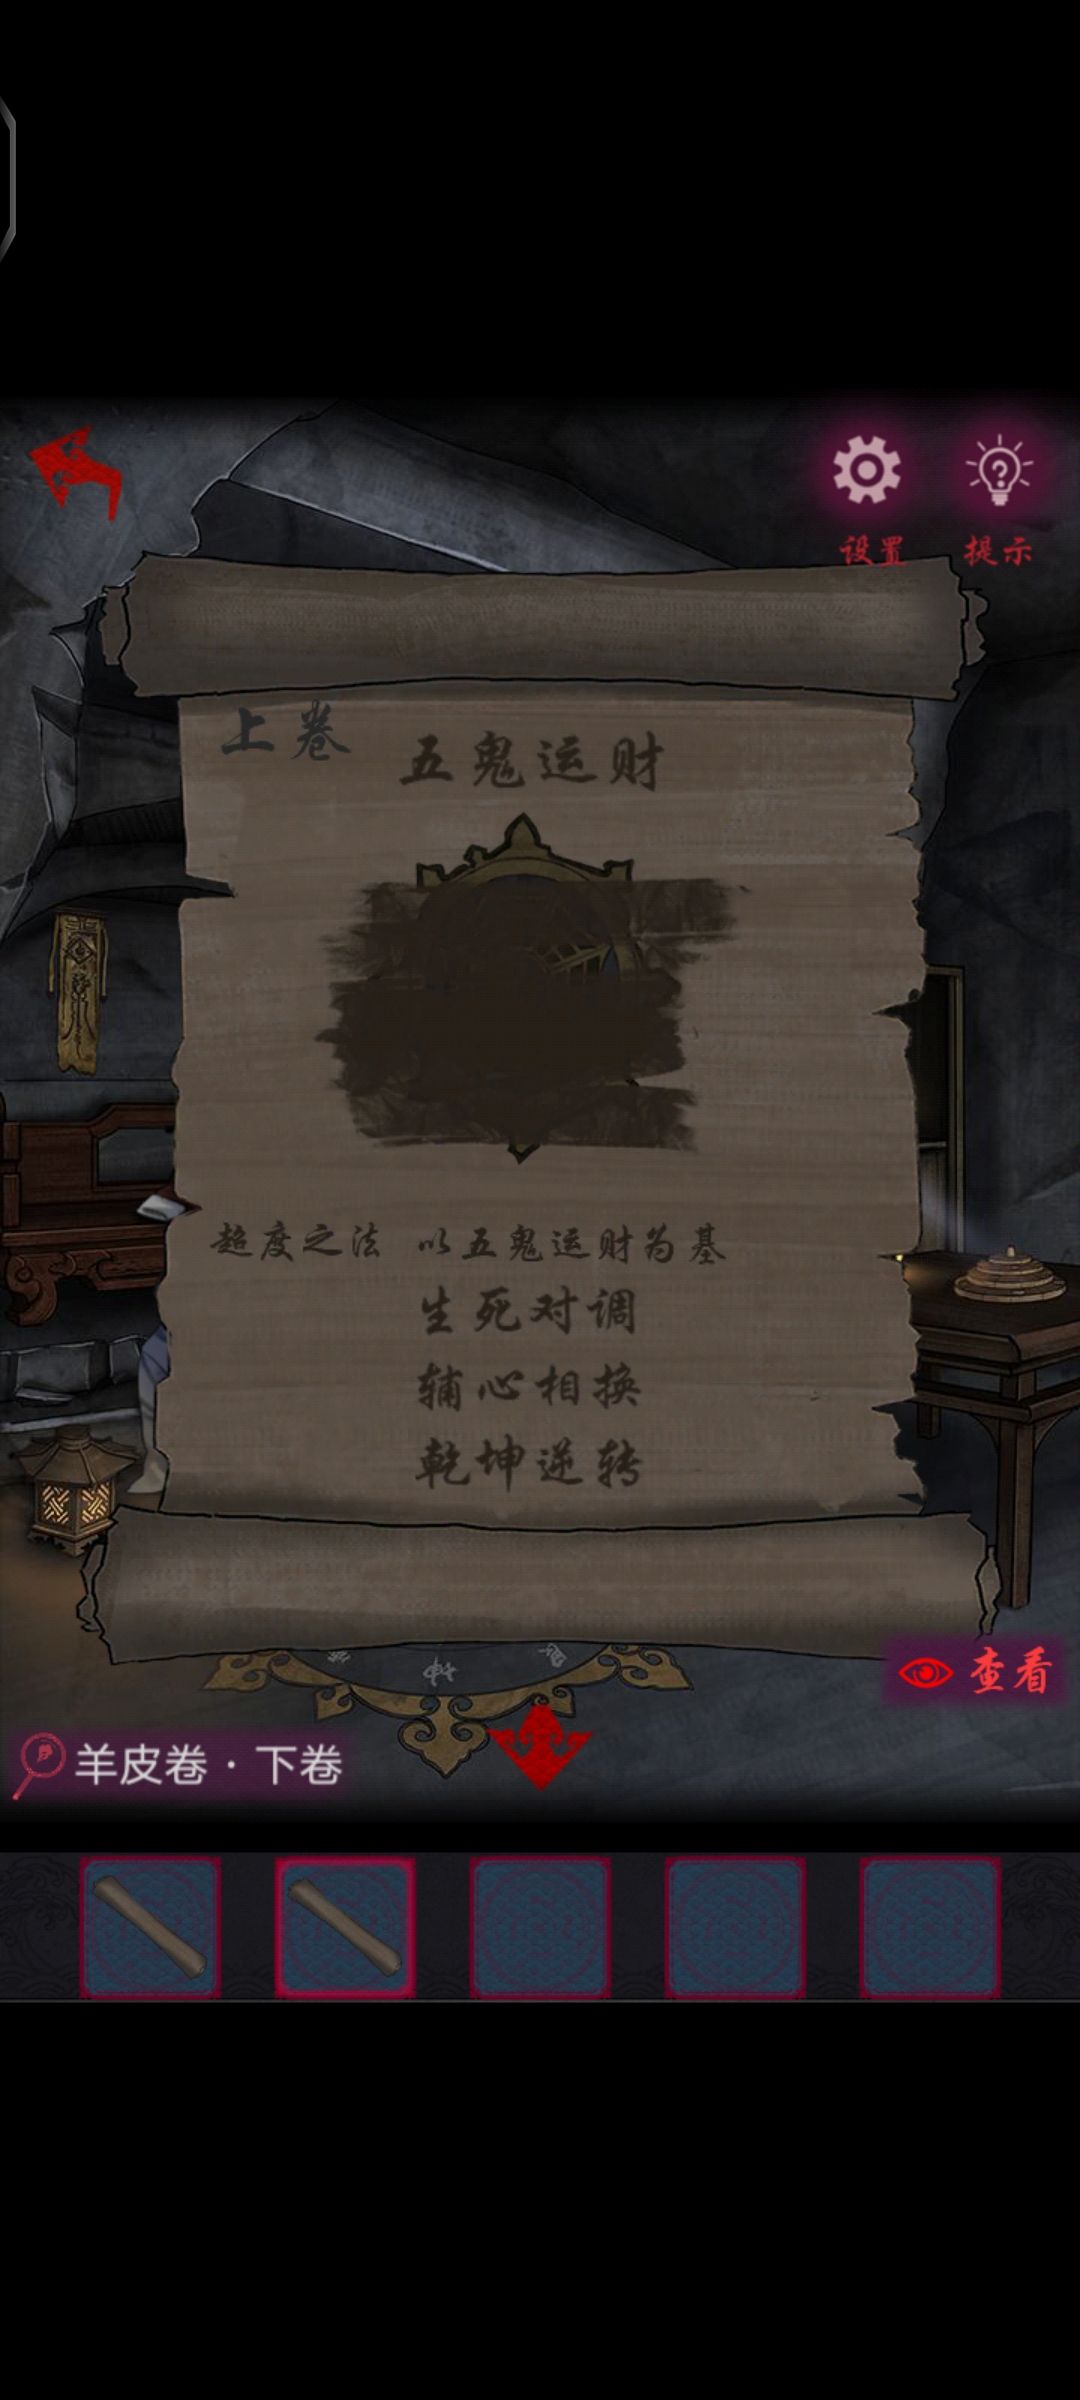 设置
提示
上卷
五鬼运财
超度之法 以五鬼运财为基
生死对调
辅心相换
乾坤逆转
查看
羊皮卷·下卷